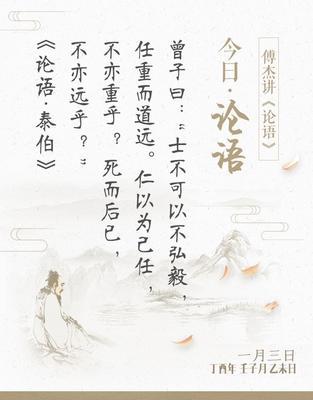 傅杰讲《论语》
今日·论语
曾子曰：“士不可以不弘毅，
任重而道远。仁以为己任，
不亦重乎？死而后已，
不亦远乎？”
《论语·泰伯》
一月三日
丁酉年 壬子月 乙未日